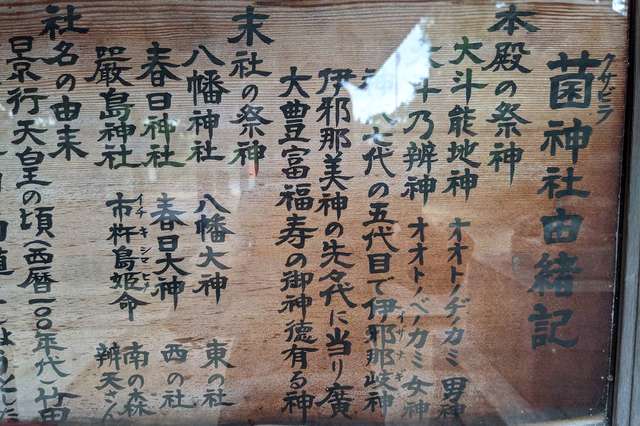 クサビラ
菌神社由緒記
本殿の祭神
大斗能地神 オオトノヂカミ 男神
斗乃辨神 オオトノベノカミ 女神
代の五代目で伊邪那岐神
イザナギ
伊邪那美神の先名代に当り廣
大豊富福寿の御神徳有る神
末社の祭神
八幡神社 八幡大神 東の社
春日神社 春日大神 西の社
嚴島神社 市杵島姫命 南の森
イチキシマヒメ
辨天さん
社名の由来
景行天皇の頃(西暦一〇〇年代)竹田